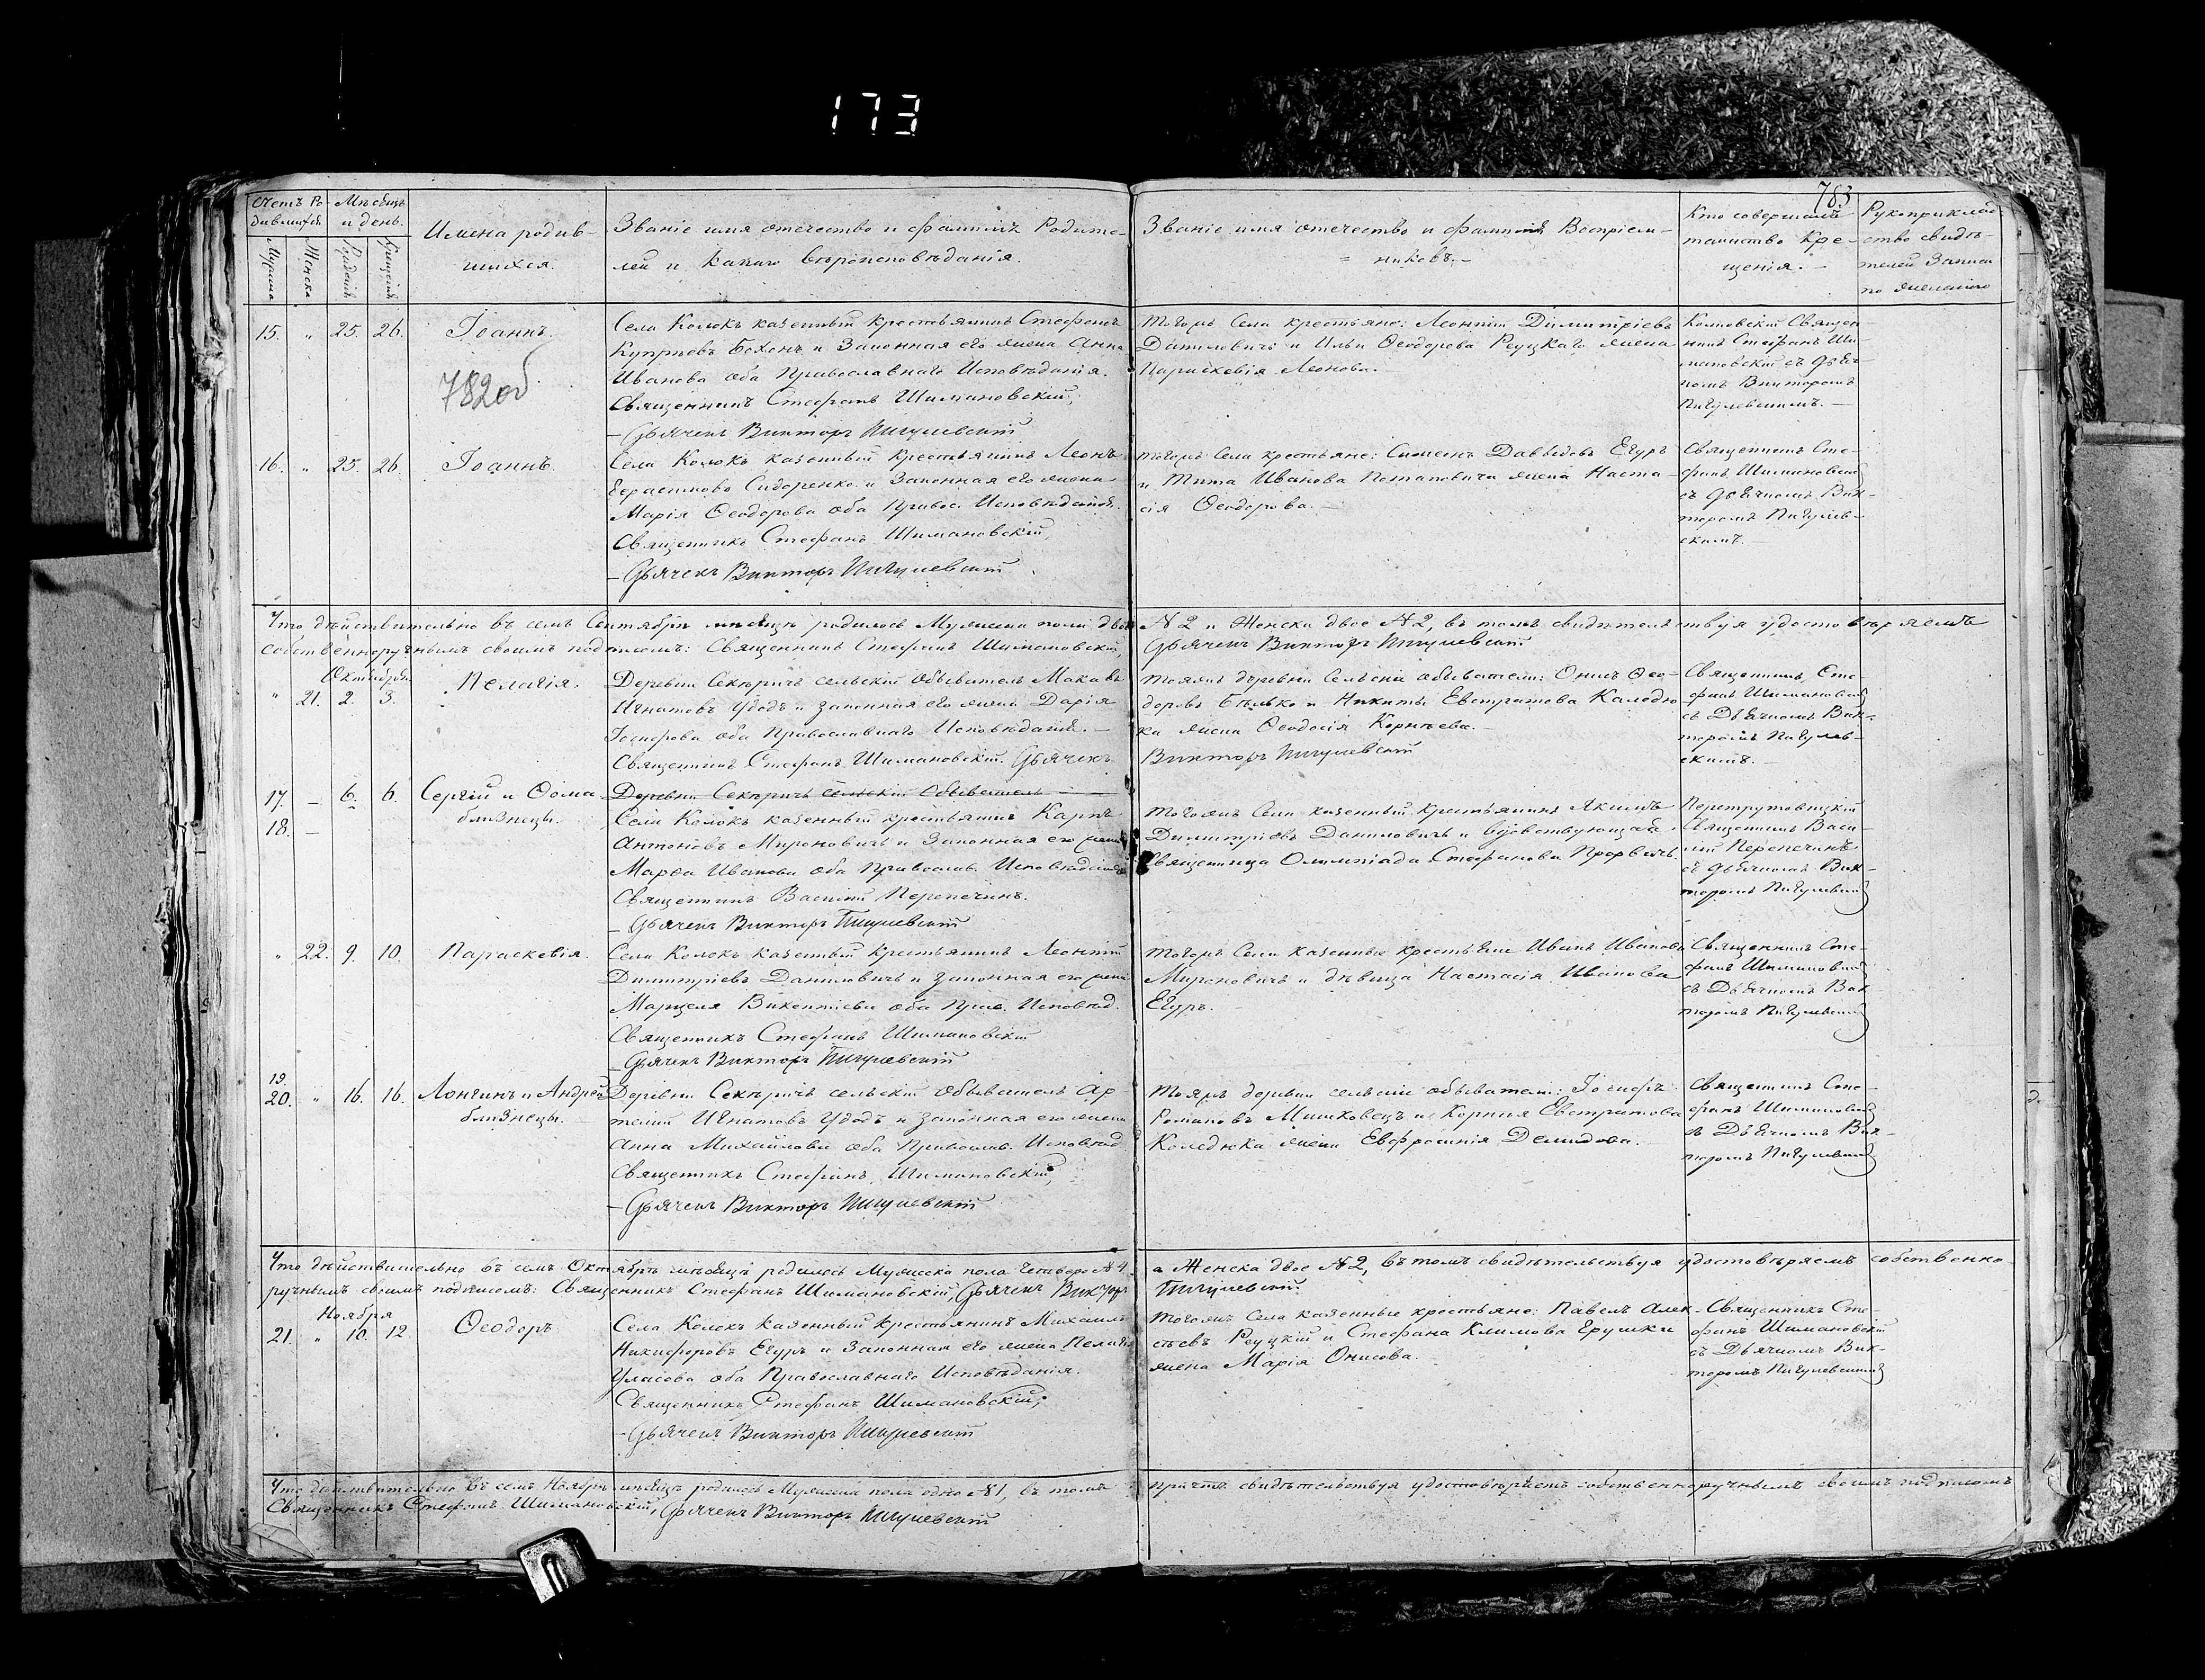 173
783
Счетъ Ро-
дившихся
Мѣсяцъ
и день.
Мужеска
Женска
Рожденія
Крещенія
Имена родив-
шихся.
Званіе имя отечество и фамилія Родите-
лей и какого вѣроисповѣданія.
Званіе имя отечество и фамилія Воспріем-
никовъ.
Кто совершалъ
таинство Кре-
щенія.
Рукоприклад
ство свидѣ-
телей записи
по желанію
15. " 25. 26. Іоаннъ.
782об
Села Колокъ казенный крестьянинъ Стефанъ
Купріевъ Бохонъ и Законная его жена Анна
Иванова оба Православнаго Исповѣданія.
Священникъ Стефанъ Шимановскій,
Дьячекъ Викторъ Пигулевскій
Тогожъ Села крестьяне: Леонтій Димитріевъ
Даниловичъ и Ильи Ѳеодорова Реуцкаго жена
Параскевія Леонова.
Колковскій Священ-
никъ Стефанъ Ши-
мановскій съ дьяч-
комъ Викторомъ
Пигулевскимъ.
16. " 25. 26. Іоаннъ.
Села Колокъ казенный крестьянинъ Леонъ
Герасимовъ Сидоренко и Законная его жена
Марія Ѳеодорова оба Правос. Исповѣданія.
Священникъ Стефанъ Шимановскій,
Дьячекъ Викторъ Пигулевскій
Тогожъ Села крестьяне: Симеонъ Давыдовъ Егуръ
и Тита Иванова Потаповича жена Наста-
сія Ѳеодорова.
Священникъ Сте-
фанъ Шимановскій
съ дьячкомъ Вик-
торомъ Пигулев-
скимъ.
Что дѣйствительно въ семъ Сентябрѣ мѣсяцѣ родилось Мужеска пола двое № 2 и Женска двое № 2, въ томъ свидѣтельствуя удостовѣряемъ
собственноручнымъ своимъ подписомъ: Священникъ Стефанъ Шимановскій, Дьячекъ Викторъ Пигулевскій
Октября
" 21. 2. 3. Пелагія.
Деревни Секѣричъ сельскій обыватель Макавѣ
Игнатовъ Удодъ и законная его жена Дарія
Іосифова оба Православнаго Исповѣданія.
Священникъ Стефанъ Шимановскій. Дьячекъ Викторъ Пигулевскій
Тояжъ деревни Сельскіе обыватели: Онисъ Ѳео-
доровъ Бѣлько и Никиты Евстратова Каледю-
ка жена Ѳеодосія Корнѣева.
Священникъ Сте-
фанъ Шимановскій
съ Дьячкомъ Вик-
торомъ Пигулев-
скимъ.
17. — 6. 6. Сергій и Ѳома
18. — близнецы.
Деревни Секѣричъ сельскій Обыватель
Села Колокъ казенный крестьянинъ Карпъ
Антоновъ Мироновичъ и Законная его жена
Марѳа Иванова оба Православ. Исповѣданія
Священникъ Василій Перепечинъ.
Дьячекъ Викторъ Пигулевскій
Тогожъ Села казенный крестьянинъ Якимъ
Димитріевъ Даниловичъ и вдовствующая
священница Олимпіада Стефанова Прорвичъ.
Священникъ Васи-
лій Перепечинъ
съ дьячкомъ Вик-
торомъ Пигулевскимъ
" 22. 9. 10. Параскевія.
Села Колокъ казенный крестьянинъ Леонтій
Димитріевъ Даниловичъ и законная его жена
Марцеля Викентіева оба Прав. Исповѣд.
Священникъ Стефанъ Шимановскій
Дьячекъ Викторъ Пигулевскій
Тогожъ Села казенные крестьяне Иванъ Ивановъ
Мироновичъ и дѣвица Настасія Иванова
Егуръ.
Священникъ Сте-
фанъ Шимановскій
съ Дьячкомъ Вик-
торомъ Пигулевскимъ
19.
20. " 16. 16. Лонгинъ и Андрей
близнецы.
Деревни Секѣричъ сельскій обыватель Ар
темій Игнатовъ Удодъ и законная его жена
Анна Михайлова оба Православ. Исповѣд.
Священникъ Стефанъ Шимановскій,
Дьячекъ Викторъ Пигулевскій
Тояжъ деревни сельскіе обыватели: Іосифъ
Романовъ Мишковецъ и Корнія Евстратова
Каледюка жена Евфросинія Демидова.
Священникъ Сте-
фанъ Шимановскій
съ Дьячкомъ Вик-
торомъ Пигулевскимъ
Что дѣйствительно въ семъ Октябрѣ мѣсяцѣ родилось Мужеска пола четверо № 4 а Женска двое № 2, въ томъ свидѣтельствуя удостовѣряемъ собственно-
ручнымъ своимъ подписомъ: Священникъ Стефанъ Шимановскій, Дьячекъ Викторъ Пигулевскій.
Ноября
21. " 10. 12. Ѳеодоръ
Села Колокъ казенный крестьянинъ Михаилъ
Никифоровъ Егуръ и Законная его жена Пелагія
Уласова оба Православнаго Исповѣданія.
Священникъ Стефанъ Шимановскій,
Дьячекъ Викторъ Пигулевскій
Тогожъ Села казенные крестьяне: Павелъ Алек-
сѣевъ Реуцкій и Стефана Климова Ерушки
жена Марія Онисова.
Священникъ Сте-
фанъ Шимановскій
съ Дьячкомъ Вик-
торомъ Пигулевскимъ
Что дѣйствительно въ семъ Ноябрѣ мѣсяцѣ родилось Мужеска пола одно № 1, въ томъ причтъ свидѣтельствуя удостовѣряетъ собственноручнымъ своимъ подписомъ
Священникъ Стефанъ Шимановскій, Дьячекъ Викторъ Пигулевскій